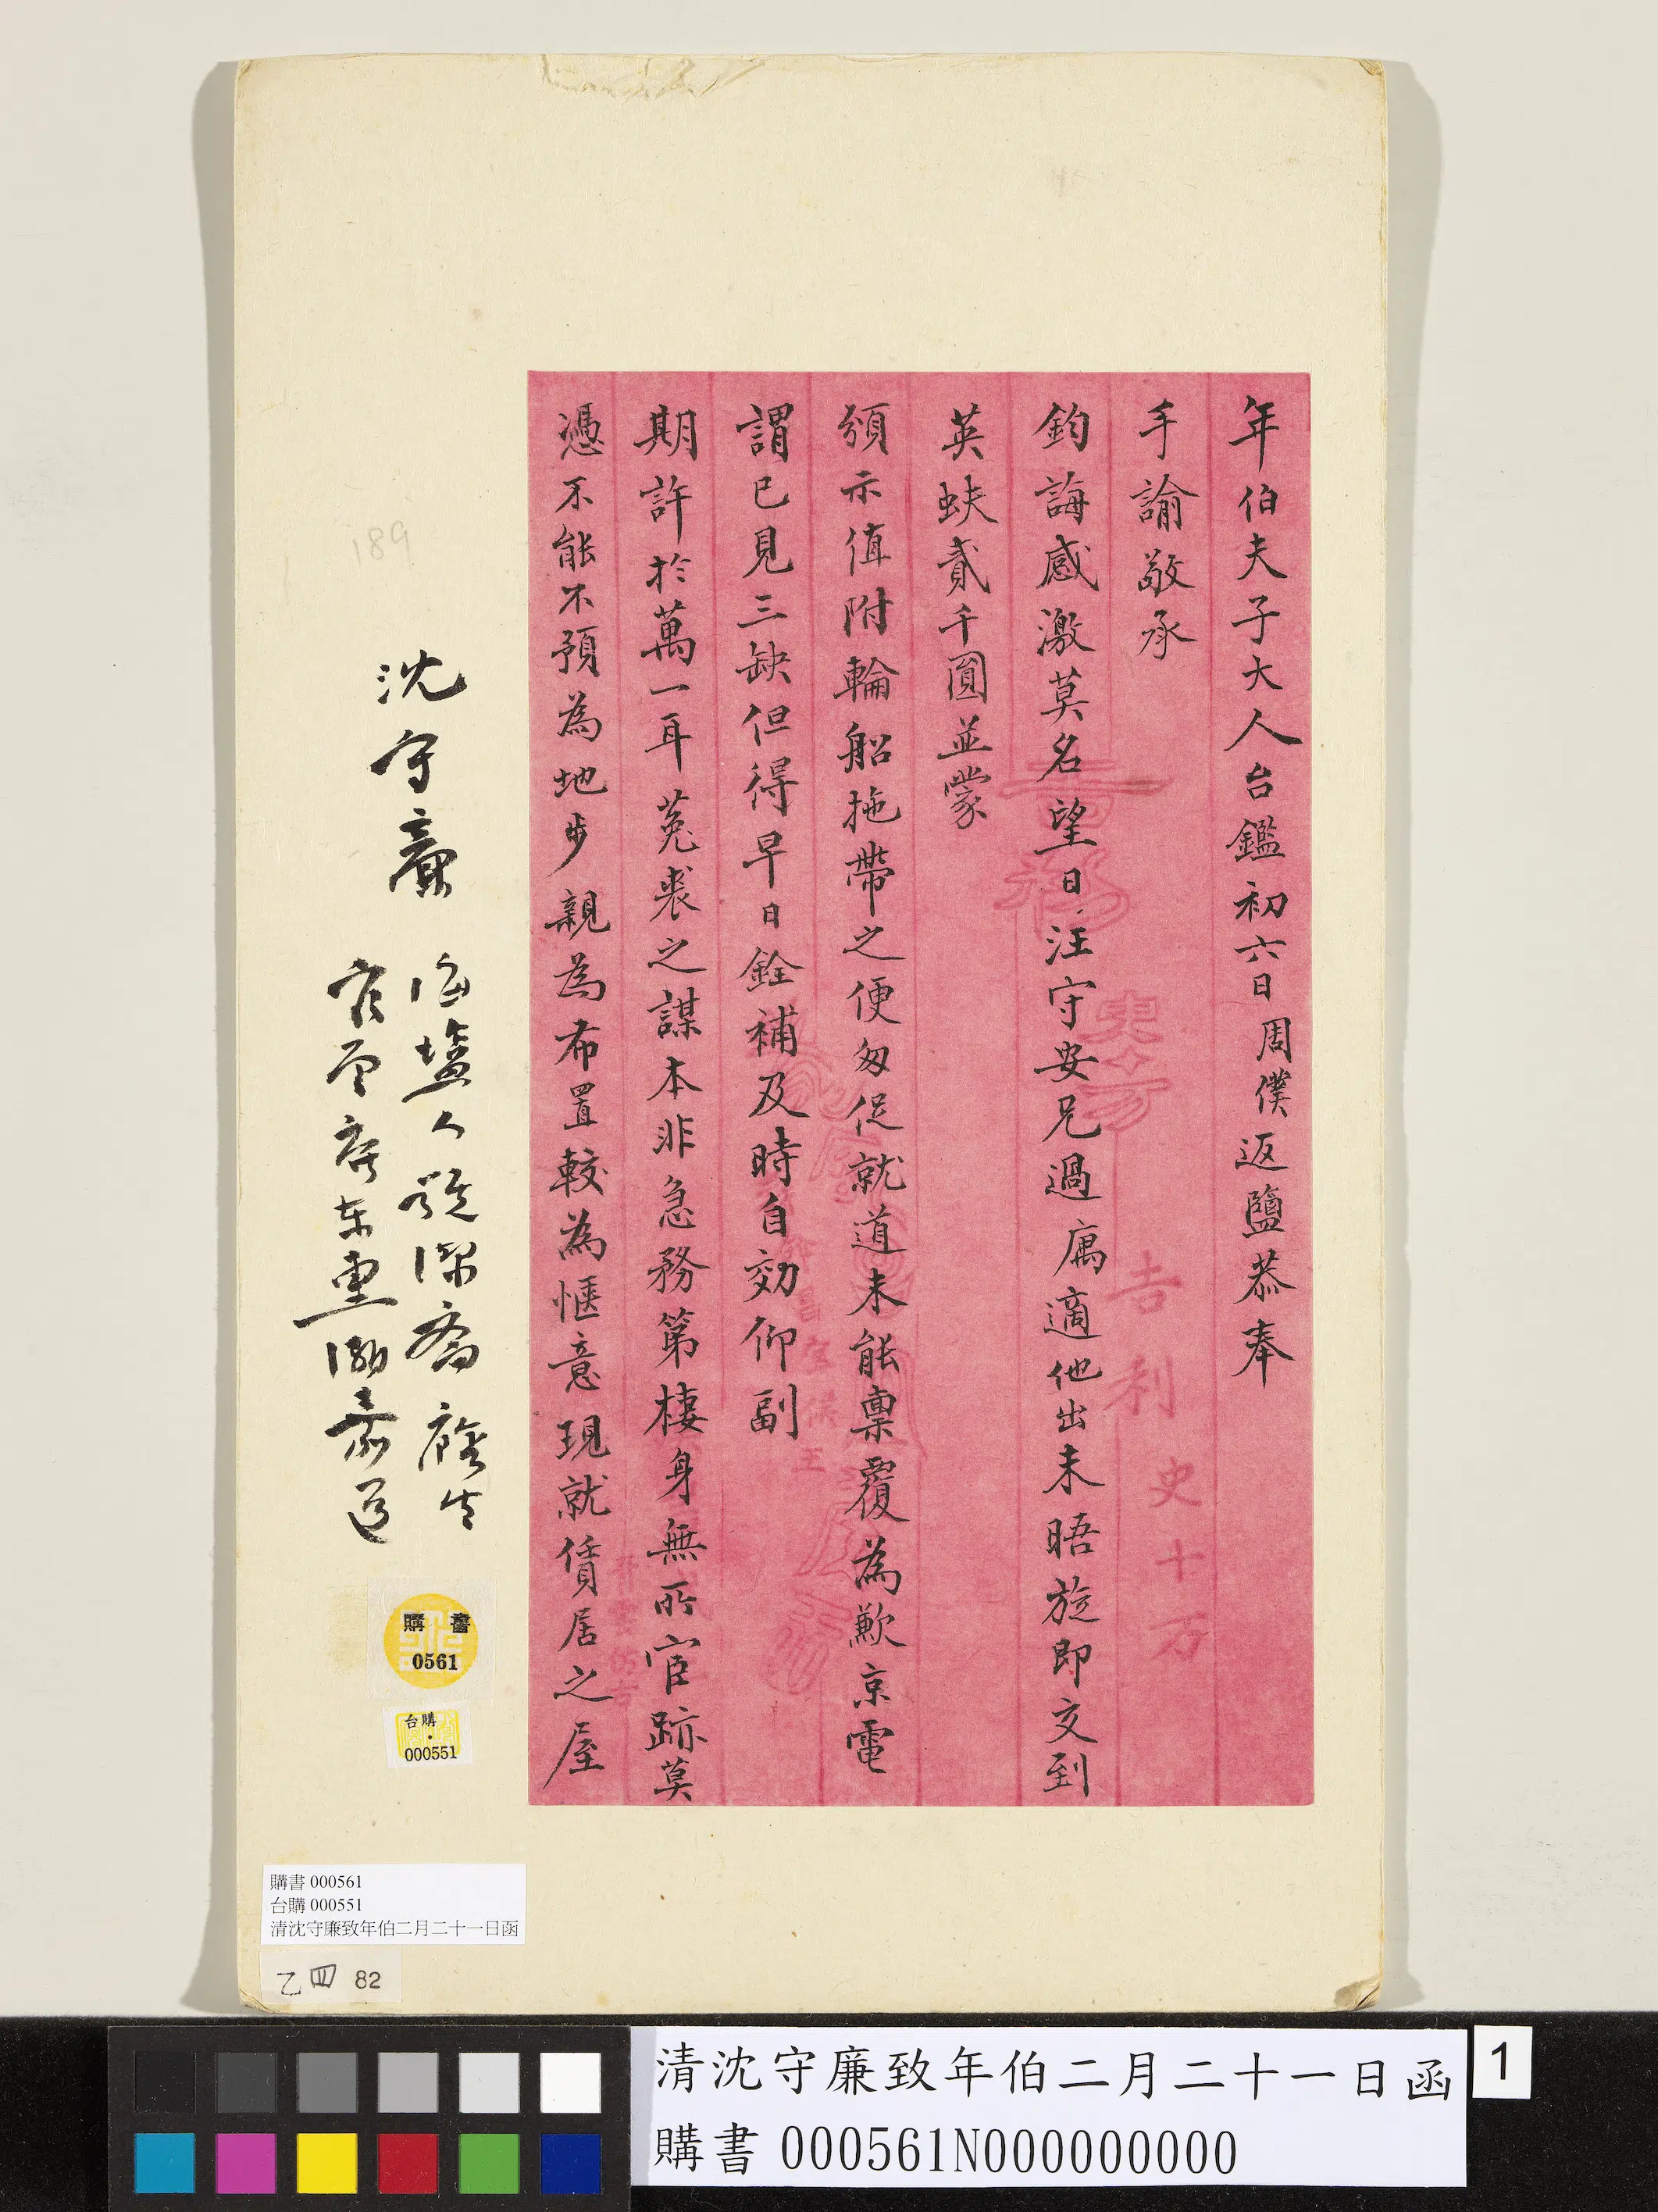 年伯夫子大人台鑑初六日周僕返鹽恭奉
手諭敬承
鈞誨感激莫名望日汪守安兄過厲適他出未晤旋即交到
英蚨貳千圓並蒙
頒示值附輪船拖帶之便匆促就道未能稟覆為歉京電
謂已見三缺但得早日銓補及時自効仰副
期許於萬一耳菟裘之謀本非急務第棲身無所宦跡莫
憑不能不預為地步親為布置較為愜意現就賃居之屋
吉利
史十万
沈守廉
海鹽人號潔齋廕生
官至 東 道
189
購書
0561
台購
000551
購書 000561
台購 000551
清沈守廉致年伯二月二十一日函
乙四 82
清沈守廉致年伯二月二十一日函
購書 000561N000000000
1